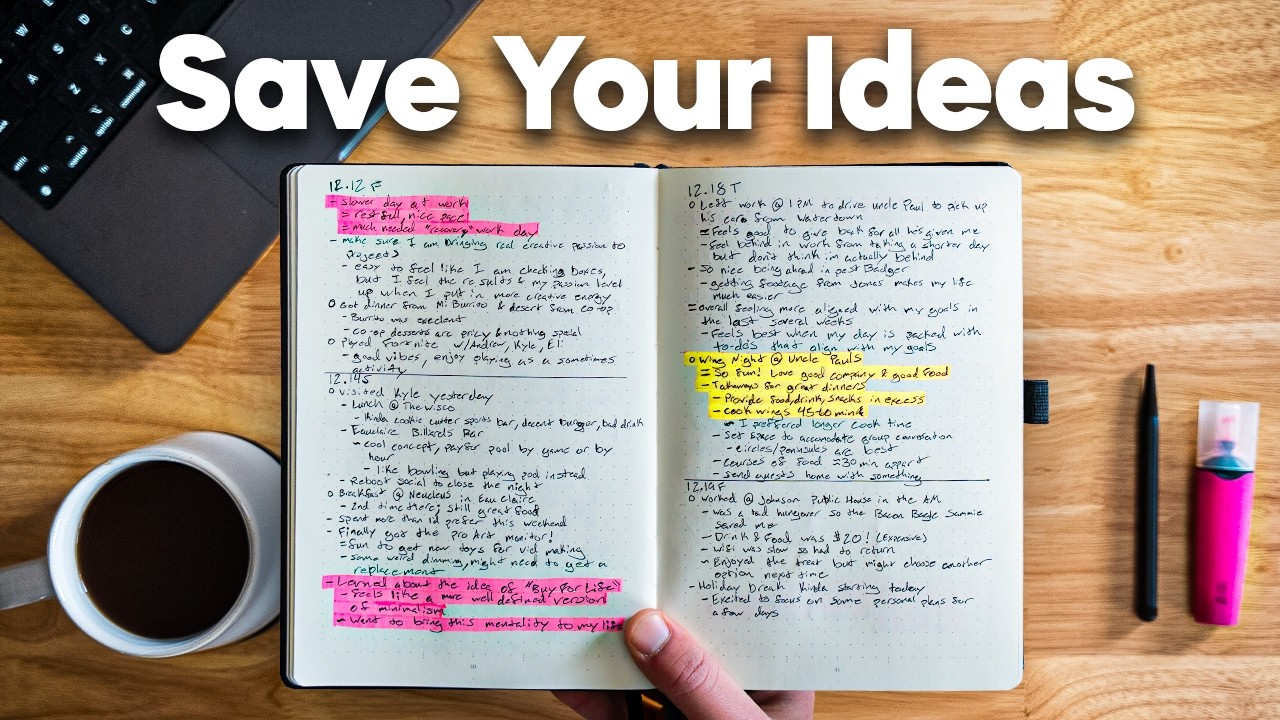 Save Your Ideas
12.12 F
+ slower day at work
= restful, nice pace!
= much needed "recovery" work day
- make sure I am bringing real creative passion to
projects
- easy to feel like I am checking boxes,
but I feel the results & my passion level
up when I put in more creative energy
O Got dinner from Mi Burrito & desert from co-op
- Burrito was excellent
- co-op desserts are pricy & nothing special
O Played Fortnite w/Andrew, Kyle, Eli
- good vibes, enjoy playing as a sometimes
activity
12.14 S
O visited Kyle yesterday
- Lunch @ The Wisco
- Kinda cookie cutter sports bar, decent burger, bad drink
Eauclaire Billiards Bar
- cool concept, pay per pool by game or by
hour
- like bowling but playing pool instead
- Reboot Social to close the night
O Breakfast @ Neucleus in Eau Claire
- 2nd time there; still great food
- spent more than I'd prefer this weekend
- Finally got the pro Art monitor!
= fun to get new toys for vid making
- some weird dimming, might need to get a
replacement
- Learned about the idea of "Buy For Life"
- Feels like a more well defined version
of minimalism
- Want to bring this mentality to my life
12.18 T
O Left work @ 1PM to drive uncle Paul to pick up
his cars from Watertown
= Feels good to give back for all he's given me
- Feel behind in work from taking a shorter day
but don't think im actually behind
- So nice being ahead in post Badger
- getting footage from Jones makes my life
much easier
= overall feeling more aligned with my goals in
the last several weeks
- Feels best when my day is packed with
to-do's that align with my goals
O Wing Night @ Uncle Pauls
= So fun! Love good company & good food
- Takeaways for great dinners
- Provide food, drink, snacks in excess
- cook wings 45 to mink
- I preferred longer cook time
- Set space to accomodate group conversation
- circles/peninsulas are best
- courses of food ≈30 min apart
- send guests home with something
12.19 F
O worked @ Johnson Public House in the AM
- was a tad hungover so the Bacon Bagle Sammie
saved me
- Drink & Food was $20! (Expensive)
- wifi was slow so had to return
- Enjoyed the treat but might choose another
option next time
- Holiday Break Kinda starting today
- Excited to focus on some personal plans for
a few days